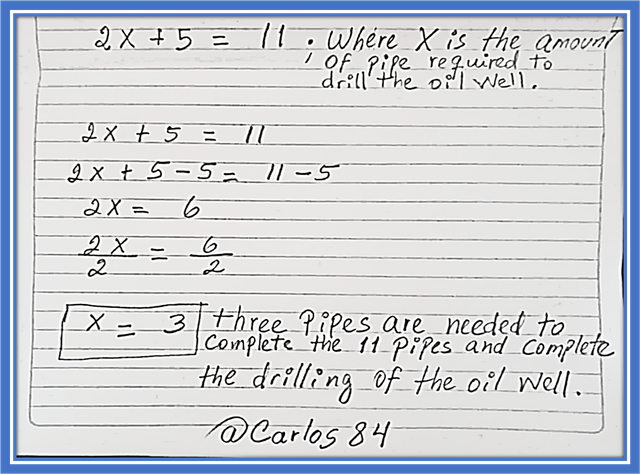 2x + 5 = 11 . Where X is the amount
of pipe required to
drill the oil well.
2x + 5 = 11
2x + 5 - 5 = 11 - 5
2x = 6
2x/2 = 6/2
x = 3 three Pipes are needed to
Complete the 11 pipes and complete
the drilling of the oil well.
@Carlos 84